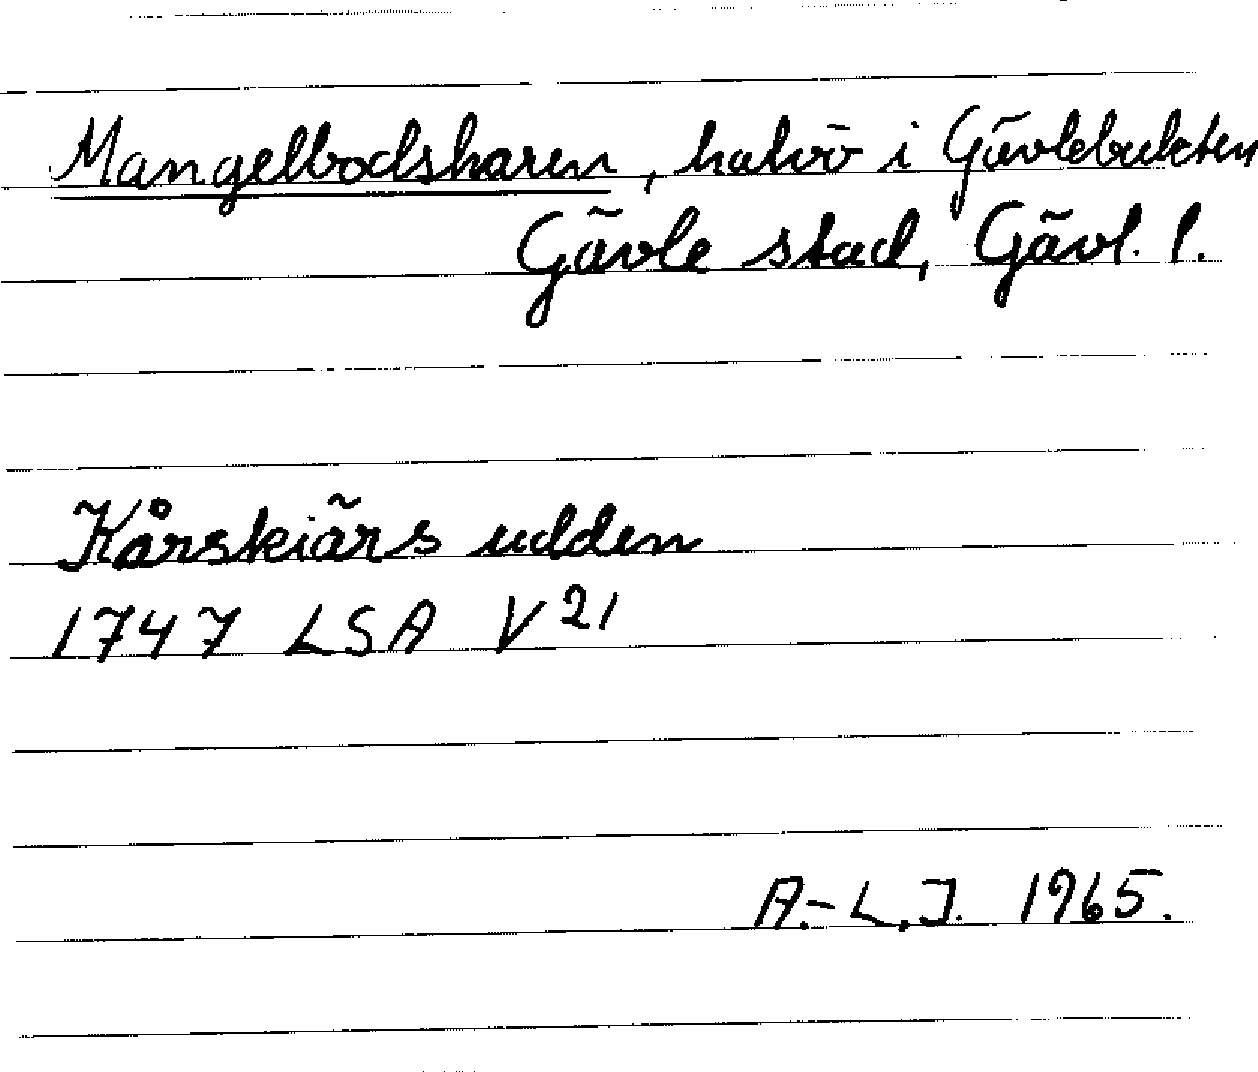 Mangelbodsharen, halvö i Gävlebukten
Gävle stad, Gävl. l.
Kårskiärs udden
1747 LSA V 21
A.-L.J. 1965.